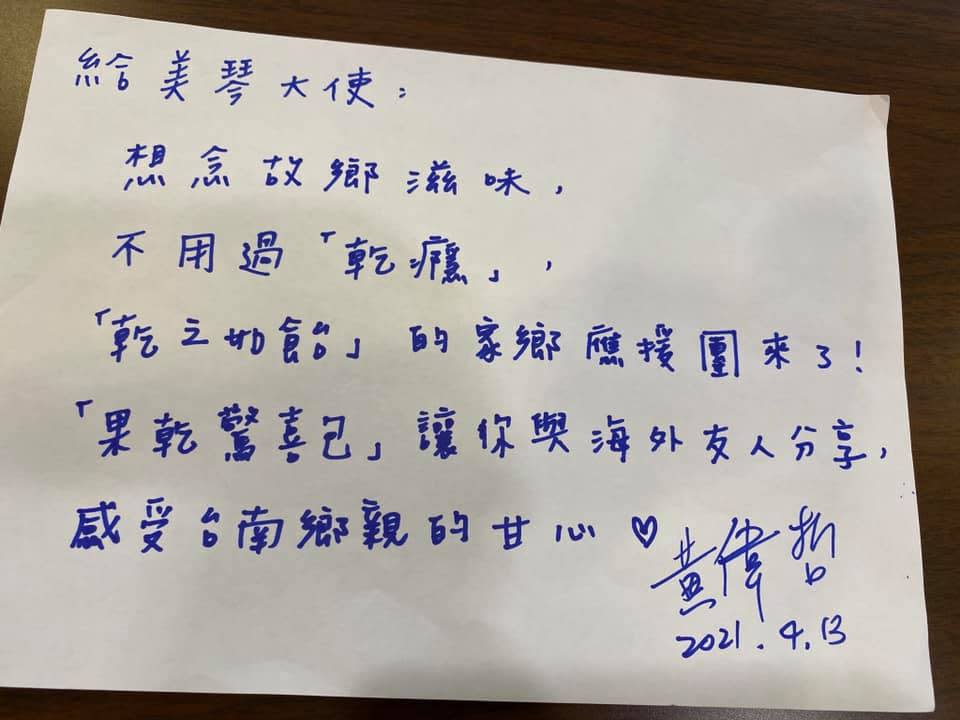 給美琴大使：
想念故鄉滋味，
不用過「乾癮」，
「乾之如飴」的家鄉應援團來了！
「果乾驚喜包」讓你與海外友人分享，
感受台南鄉親的甘心♡
黃偉哲
2021.4.13